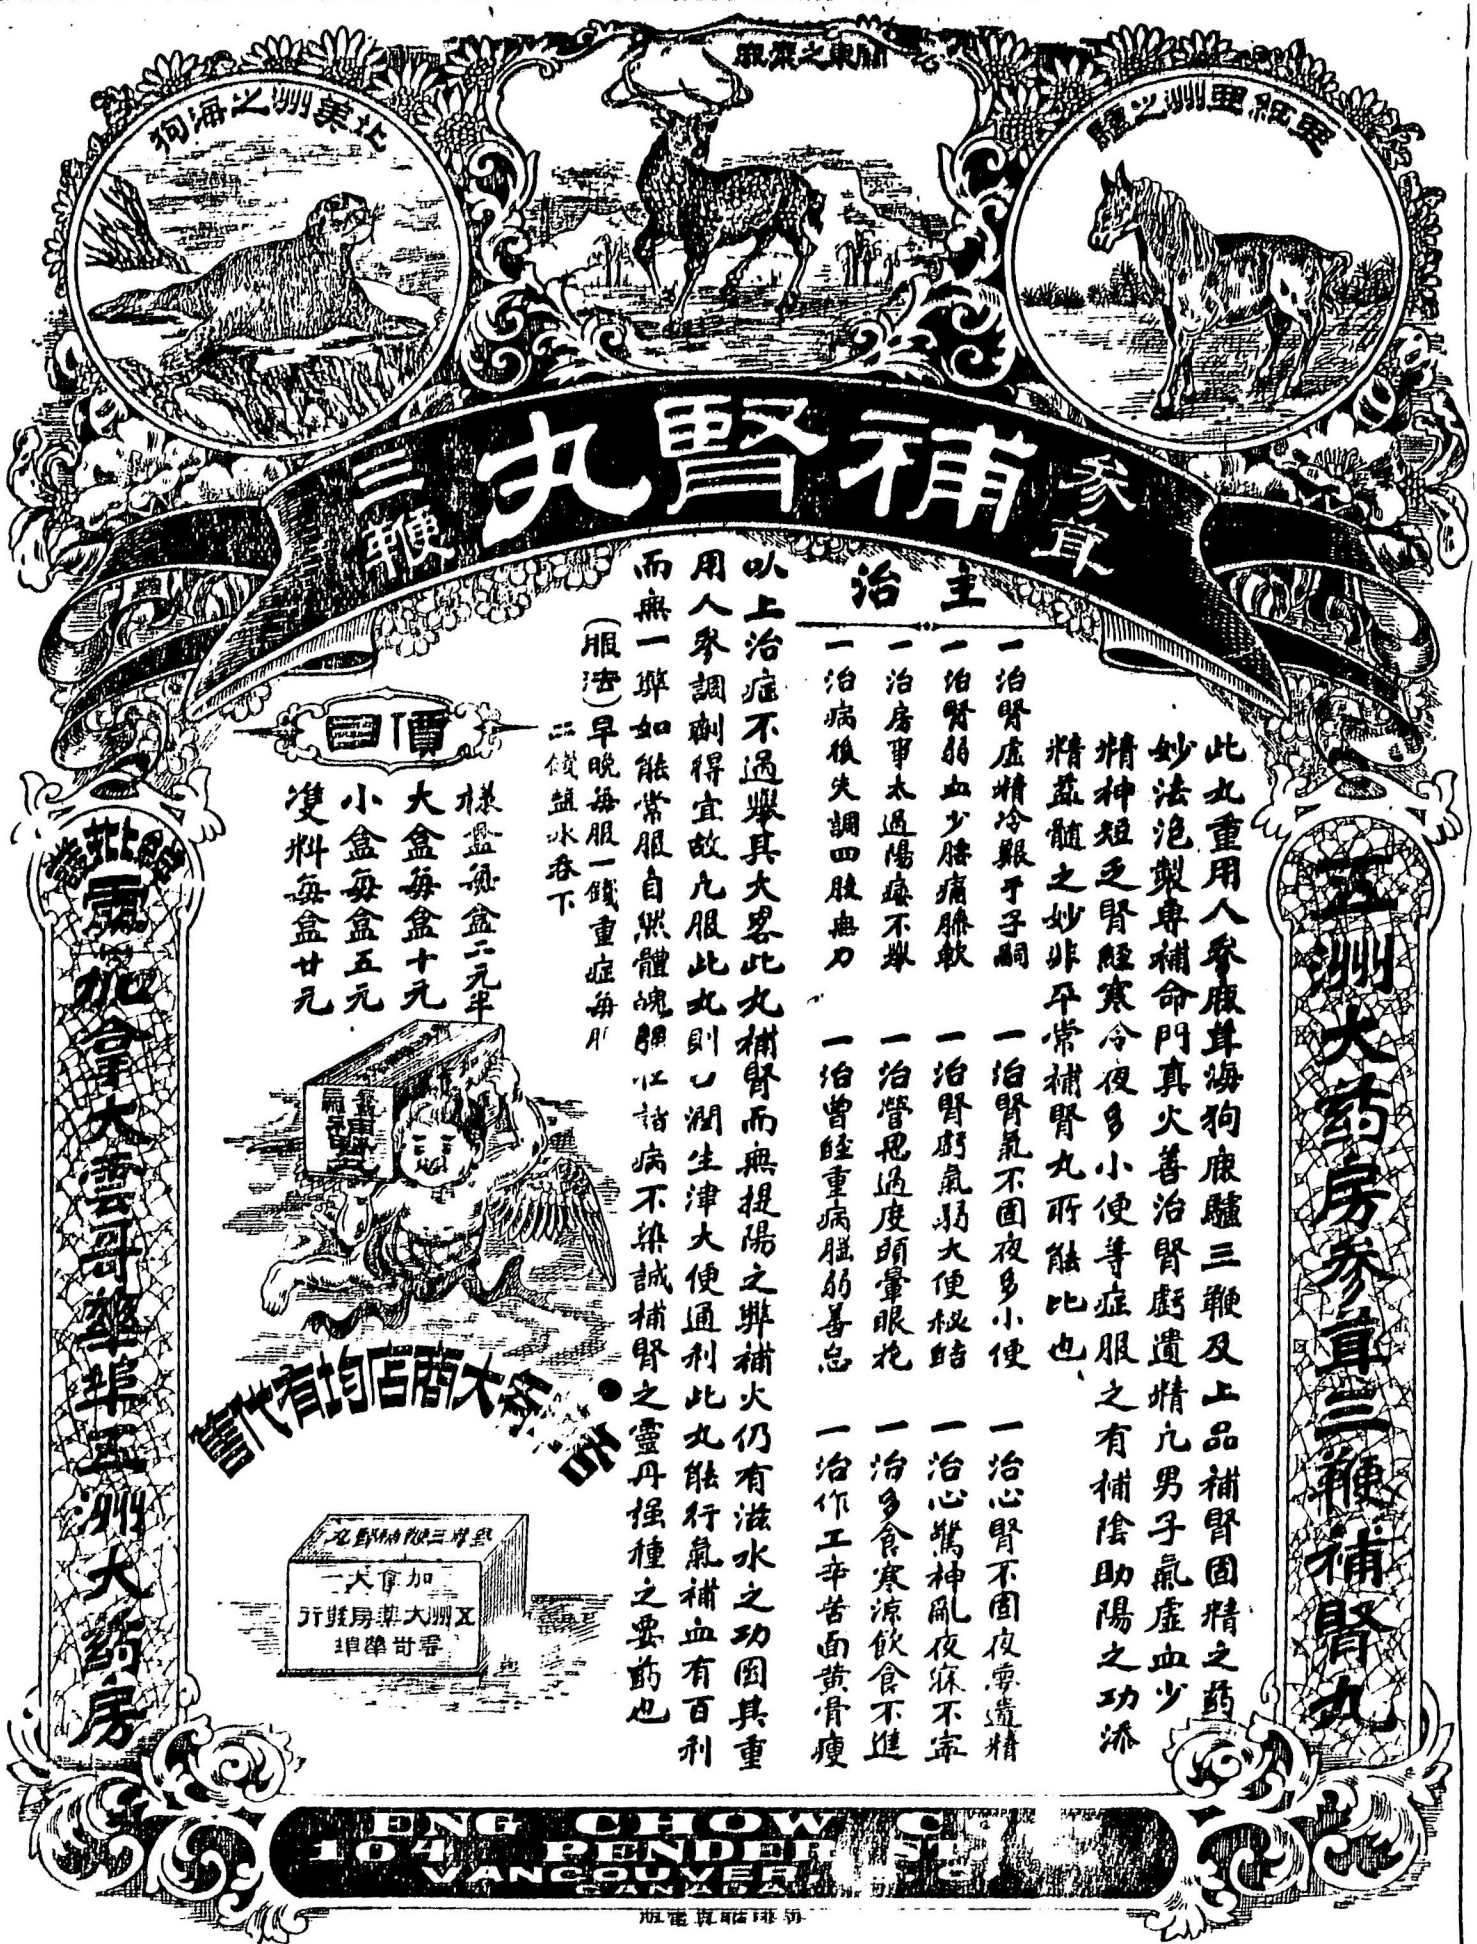 北美洲之海狗
關東之梅鹿
亞細亞洲之驢
參茸
補腎丸
三鞭
五洲大药房參茸三鞭補腎丸
此丸重用人參鹿茸海狗鹿驢三鞭及上品補腎固精之药
妙法泡製專補命門真火善治腎虧遺精凢男子氣虛血少
精神短乏腎經寒冷夜多小便等症服之有補陰助陽之功添
精益髓之妙非平常補腎丸所能比也
主治
一治腎虛精冷艱于子嗣
一治腎氣不固夜多小便
一治心腎不固夜夢遺精
一治腎弱血少腰痛膝軟
一治腎虧氣弱大便秘結
一治心驚神亂夜寐不寧
一治房事太過陽痿不舉
一治營思過度頭暈眼花
一治多食寒凉飲食不進
一治病後失調四肢無力
一治曾經重病腦弱善忘
一治作工辛苦面黄骨瘦
以上治症不過舉其大畧此丸補腎而無提陽之弊補火仍有滋水之功因其重
用人參調劑得宜故凢服此丸則心潤生津大便通利此丸能行氣補血有百利
而無一弊如能常服自然體魄強壯諸病不染誠補腎之靈丹强種之要药也
(服法)早晚每服一錢重症每服
二錢鹽水吞下
價目
樣盒每盒二元半
大盒每盒十元
小盒每盒五元
雙料每盒廿元
各大商店均有代售
加拿大
五洲大藥房監行
雲哥華埠
加拿大雲哥華埠五洲大药房
ENG CHOW
104 PENDER ST
VANCOUVER B.C.
CANADA